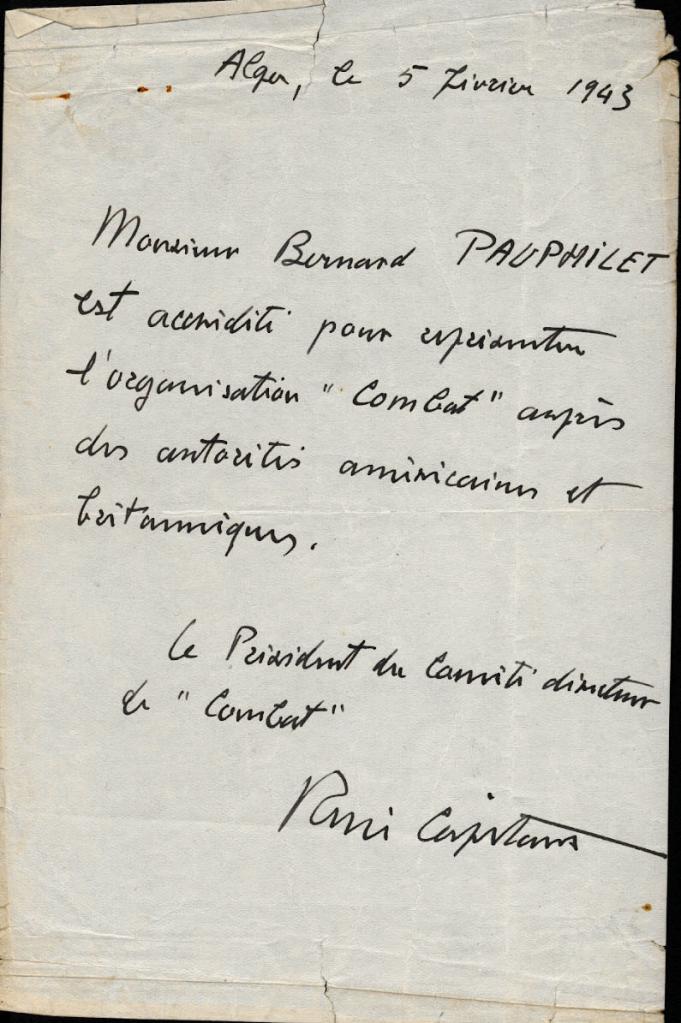 Alger, le 5 Février 1943
Monsieur Bernard PAUPHILET
est accrédité pour représenter
l'organisation "Combat" auprès
des autorités américaines et
britanniques.
Le Président du Comité directeur
de "Combat"
René Capitant